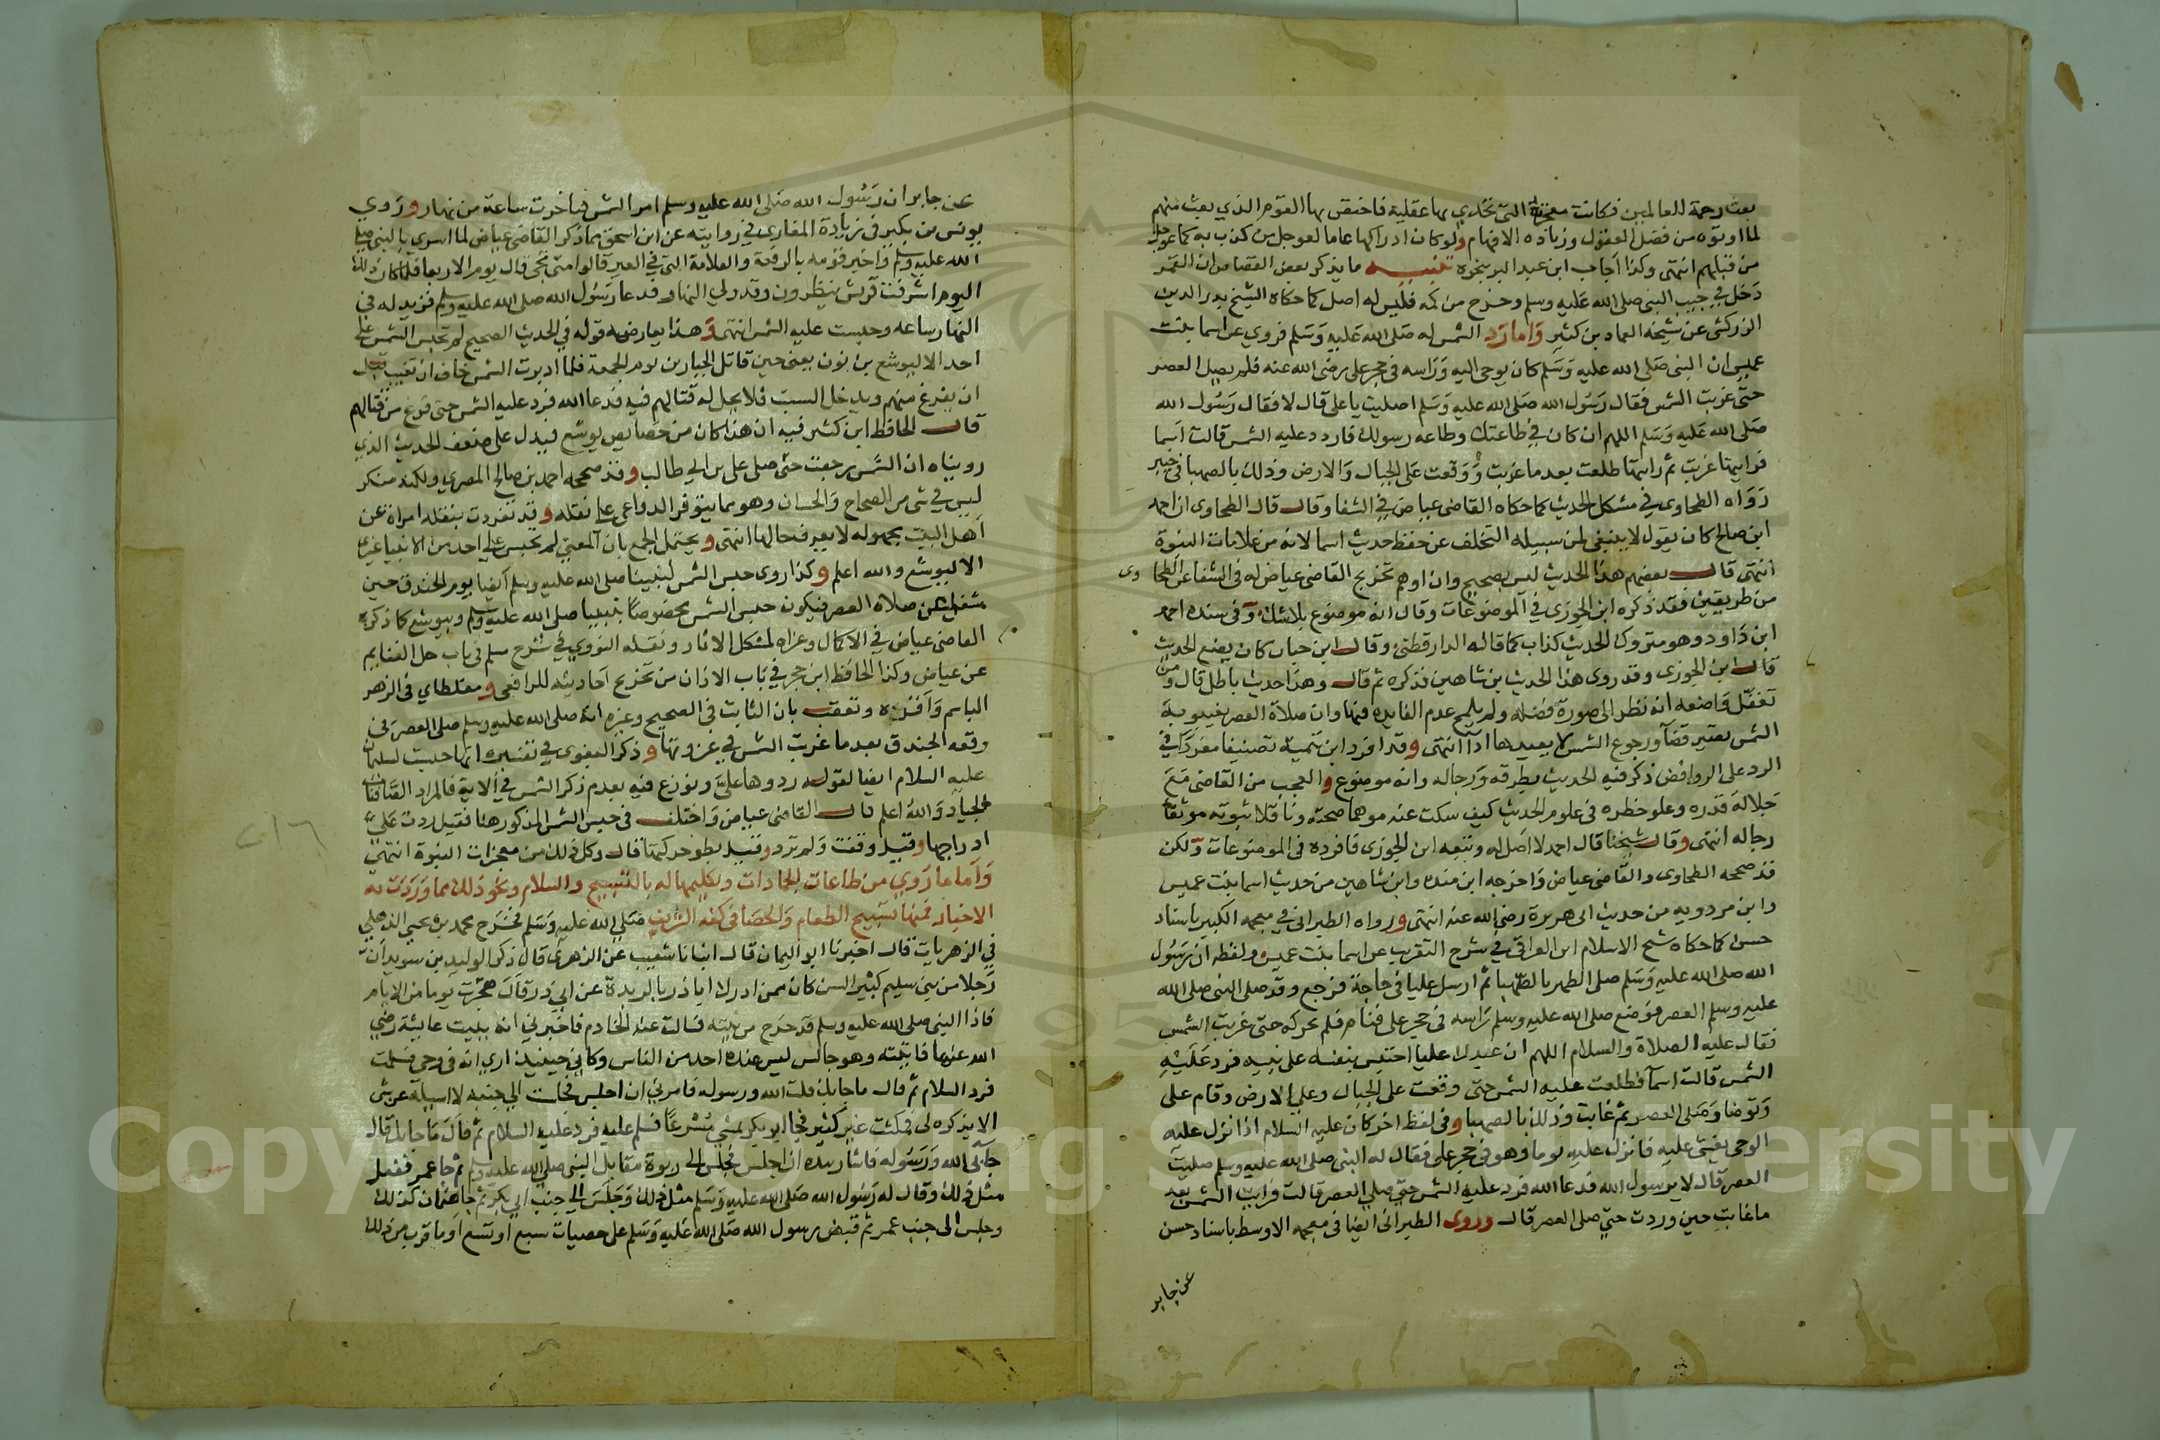 بعث رحمة للعالمين فكانت معجزته التي تحدي بها عقلية فاختص بها القوم الذي بعث منهم
لما اوتوه من فضل العقول وزياده الافهام ولو كان ادراكها عاما لعوجل من كذب به كما عوجل
من قبلهم انتهى وكذا اجاب ابن عبد البر بنحوه تنبيه ما يذكر بعض القصاص ان القمر
دخل في جيب النبي صلى الله عليه وسلم وخرج من كمه فليس له اصل كما حكاه الشيخ بدر الدين
الزركشي عن شيخه العماد بن كثير واما رد الشمس له صلى الله عليه وسلم فروي عن اسما بنت
عميس ان النبي صلى الله عليه وسلم كان يوحى اليه وراسه في حجر علي رضي الله عنه فلم يصل العصر
حتى غربت الشمس فقال رسول الله صلى الله عليه وسلم اصليت يا علي قال لا فقال رسول الله
صلى الله عليه وسلم اللهم ان كان في طاعتك وطاعه رسولك فاردد عليه الشمس قالت اسما
فرايتها غربت ثم رايتها طلعت بعد ما غربت ووقعت على الجبال والارض وذلك بالصهبا في خيبر
رواه الطحاوي في مشكل الحديث كما حكاه القاضي عياض في الشفا وقال قال الطحاوي ان احمد
ابن صالح كان يقول لا ينبغي لمن سبيله التخلف عن حفظ حديث اسما لانه من علامات النبوة
انتهى قال بعضهم هذا الحديث ليس بصحيح وان اوهم تخريج القاضي عياض له في الشفا عن الطحاوى
من طريقين فقد ذكره ابن الجوزي في الموضوعات وقال انه موضوع بلا شك وفي سنده احمد
ابن داود وهو متروك الحديث كذاب كما قاله الدارقطني وقال ابن حبان كان يضع الحديث
قال ابن الجوزي وقد روى هذا الحديث بن شاهين فذكره ثم قال وهذا حديث باطل قال ومن
تغفل واضعه انه نظر الى صورة فضله ولم يلمح عدم الفايده فيها وان صلاة العصر بغيبوبة
الشمس تصير قضآ ورجوع الشمس لا يعيدها ادآ انتهى وقد افرد ابن تيمية تصنيفا مفردا في
الرد على الروافض ذكر فيه الحديث بطرقه ورجاله وانه موضوع والعجب من القاضي مع
جلالة قدره وعلو خطره في علوم الحديث كيف سكت عنه موهما صحته وناقلا ثبوته موثقا
رجاله انتهى وقال شيخنا قال احمد لا اصل له وتبعه ابن الجوزي فاورده في الموضوعات ولكن
قد صححه الطحاوي والقاضي عياض واخرجه ابن منده وابن شاهين من حديث اسما بنت عميس
وابن مردويه من حديث ابي هريرة رضي الله عنه انتهى ورواه الطبراني في معجمه الكبير باسناد
حسن كما حكاه شيخ الاسلام ابن العراقي في شرح التقريب عن اسما بنت عميس ولفظه ان رسول
الله صلى الله عليه وسلم صلى الظهر بالصهبا ثم ارسل عليا في حاجة فرجع وقد صلى النبي صلى الله
عليه وسلم العصر فوضع صلى الله عليه وسلم راسه في حجر علي فنام فلم يحركه حتى غربت الشمس
فقال عليه الصلاة والسلام اللهم ان عبدك عليا احتبس بنفسه على نبيه فرد عليه
الشمس قالت اسمآ فطلعت عليه الشمس حتى وقعت على الجبال وعلى الارض وقام علي
وتوضا وصلى العصر ثم غابت وذلك بالصهبا وفي لفظ اخر كان عليه السلام اذا نزل عليه
الوحي يغشى عليه فانزل عليه يوما وهو في حجر علي فقال له النبي صلى الله عليه وسلم صليت
العصر قال لا يرسول الله فدعا الله فرد عليه الشمس حتى صلى العصر قالت فرايت الشمس بعد
ما غابت حين وردت حتى صلى العصر قال وروى الطبراني ايضا في معجمه الاوسط باسناد حسن
عن جابر
عن جابر ان رسول الله صلى الله عليه وسلم امر الشمس فتاخرت ساعة من نهار وروي
يونس بن بكير في زيادة المغازي في روايته عن ابن اسحق مما ذكر القاضي عياض لما اسري بالنبي صلى
الله عليه وسلم واخبر قومه بالرفقة والعلامة التي في العير قالوا متى تجي قال يوم الاربعا فلما كان ذلك
اليوم اشرفت قريش ينظرون وقد ولي النهار فدعا رسول الله صلى الله عليه وسلم فزيد له في
النهار ساعه وحبست عليه الشمس انتهى وهذا يعارضه قوله في الحديث الصحيح لم تحبس الشمس على
احد الا ليوشع بن نون يعني حين قاتل الجبارين يوم الجمعة فلما ادبرت الشمس خاف ان تغيب قبل
ان يفرغ منهم ويدخل السبت فلا يحل له قتالهم فيه فدعا الله فرد عليه الشمس حتى فرغ من قتالهم
قال الحافظ ابن كثير فيه ان هذا كان من خصايص يوشع فيدل على ضعف الحديث الذي
رويناه ان الشمس رجعت حتى صلى علي بن ابي طالب وقد صححه احمد بن صالح المصري ولكنه منكر
ليس في شي من الصحاح والحسان وهو مما يتوفر الدواعي على نقله وقد تفردت بنقله امراة من
اهل البيت مجهوله لا يعرف حالها انتهى ويحتمل الجمع بان المعنى لم تحبس على احد من الانبيا غيري
الا ليوشع والله اعلم وكذا روى حبس الشمس لنبينا صلى الله عليه وسلم ايضا يوم الخندق حين
شغل عن صلاة العصر فيكون حبس الشمس مخصوصا بنبينا صلى الله عليه وسلم وبيوشع كما ذكره
القاضي عياض في الاكمال وعزاه لمشكل الاثار ونقله النووي في شرح مسلم في باب حل الغنايم
عن عياض وكذا الحافظ ابن حجر في باب الاذان من تخريج احاديث الرافعي ومغلطاي في الزهر
الباسم واقروه وتعقب بان الثابت في الصحيح وغيره انه صلى الله عليه وسلم صلى العصر في
وقعة الخندق بعد ما غربت الشمس في غزوتها وذكر البغوي في تفسيره انها حبست لسليمان
عليه السلام ايضا لقوله ردوها علي ونوزع فيه بعدم ذكر الشمس في الاية فالمراد الصافنات
الجياد والله اعلم قال القاضي عياض واختلف في حبس الشمس المذكور هنا فقيل ردت على
ادراجها وقيل وقفت ولم ترد وقيل بطو حركتها قال وكل ذلك من معجزات النبوة انتهى
واما ما روي من طاعات الجمادات وتكليمها له بالتسبيح والسلام ونحو ذلك مما وردت به
الاخبار فمنها تسبيح الطعام والحصا في كفه الشريف صلى الله عليه وسلم فخرج محمد بن يحيي الذهلي
في الزهريات قال اخبرنا ابو اليمان قال انبانا شعيب عن الزهري قال ذكر الوليد بن سويد ان
رجلا من بني سليم كبير السن كان ممن ادرك ابا ذر بالربذة عن ابي ذر قال هجرت يوما من الايام
فاذا النبي صلى الله عليه وسلم قد خرج من بيته فسالت عنه الخادم فاخبرني انه ببيت عايشة رضي
الله عنها فاتيته وهو جالس ليس عنده احد من الناس وكاني حينيذ اري انه في وحي فسلمت
فرد السلام ثم قال ما جا بك قلت الله ورسوله فامرني ان اجلس فجلست الى جنبه لا اساله عن شي
الا يذكره لي فمكثت غير كثير فجا ابو بكر يمشي مسرعا فسلم عليه فرد عليه السلام ثم قال ما جا بك قال
جآ بي الله ورسوله فاشار بيده ان اجلس فجلس الى ربوة مقابل النبي صلى الله عليه وسلم ثم جا عمر ففعل
مثل ذلك وقال له رسول الله صلى الله عليه وسلم مثل ذلك وجلس الى جنب ابي بكر ثم جا عثمان كذلك
وجلس الى جنب عمر ثم قبض رسول الله صلى الله عليه وسلم على حصيات سبع او تسع او ما قرب من ذلك
Copyright © King Saud University